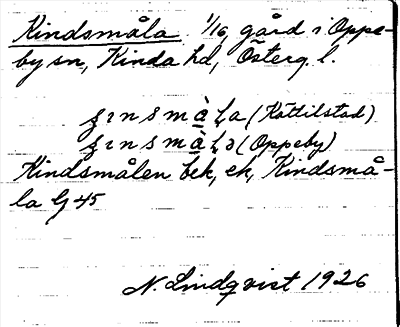 Kindsmåla 1/16, gård i Oppe-
by sn, Kinda hd, Österg. l.
ȥınsmàḷa (Kättilstad)
ȥınsmàḷə (Oppeby)
Kindsmålen bek, ek, Kindsmå-
la G 45
N. Lindqvist 1926